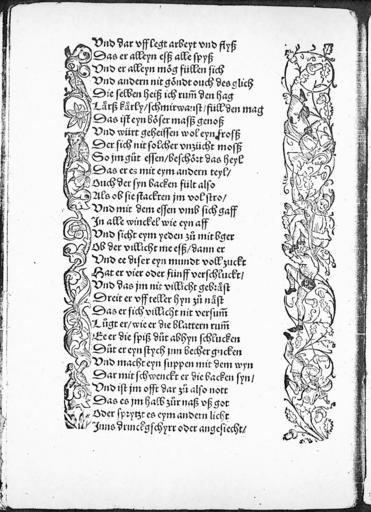 Vnd dar vff legt arbeyt vnd flyß
Das er alleyn eß alle spyß
Vnd er alleyn mög füllen sich
Vnd andern nit göndt ouch des glich
Die selben heiß ich rum den hag
Lärß kärly/schmirwanst/füll den mag
Das ist eyn böser maß genoß
Vnd würt geheissen wol eyn froß
Der sich nit solcher vnzücht moß
So jm güt essen/beschört das heyl
Das er es mit eym andern teyl/
Ouch der syn backen fült also
Als ob sie stackten jm vol stro/
Vnd mit dem essen vmb sich gaff
In alle winckel wie eyn aff
Vnd sicht eym yeden zü mit bger
Ob der villicht me eß/dann er
Vnd ee diser eyn mundt voll zuckt
Hat er vier oder fünff verschluckt/
Vnd das jm nit villicht gebräst
Dreit er vff teller hyn zü näst
Das er sich villicht nit versum
Lügt er/wie er die blattern rum
Ee er die spiß düt abhyn schlucken
Düt er eyn stych jnn becher gucken
Vnd macht eyn suppen mit dem wyn
Dar mit schwenckt er die backen syn/
Vnd ist jm offt dar zü also nott
Das es jm halb zür naß vß got
Oder sprytzt es eym andern licht
Inns drinckgschyrr oder angesiecht/